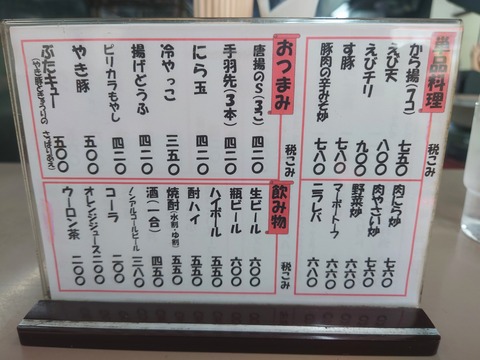 単品料理
から揚(7コ) 七五〇
えび天 八〇〇
えびチリ 七八〇
す豚 九〇〇
豚肉の辛みそ炒 七八〇
税こみ
肉にら炒 七六〇
肉やさい炒 七六〇
野菜炒 六六〇
マーボートーフ 六六〇
ニラレバ 六八〇
おつまみ
税こみ
唐揚のS(3こ) 四二〇
手羽先(3本) 四二〇
にら玉 四二〇
冷やっこ 三五〇
揚げどうふ 四二〇
ピリカラもやし 四二〇
やき豚 五〇〇
ぶたキュー 五〇〇
(やき豚ときゅうりの
さっぱりあえ)
飲み物
税こみ
生ビール 六〇〇
瓶ビール 六〇〇
ハイボール 五五〇
酎ハイ 五五〇
焼酎(水割・ゆ割) 五五〇
酒(一合) 四五〇
ノンアルコールビール 三八〇
コーラ 二〇〇
オレンジジュース 二〇〇
ウーロン茶 二〇〇